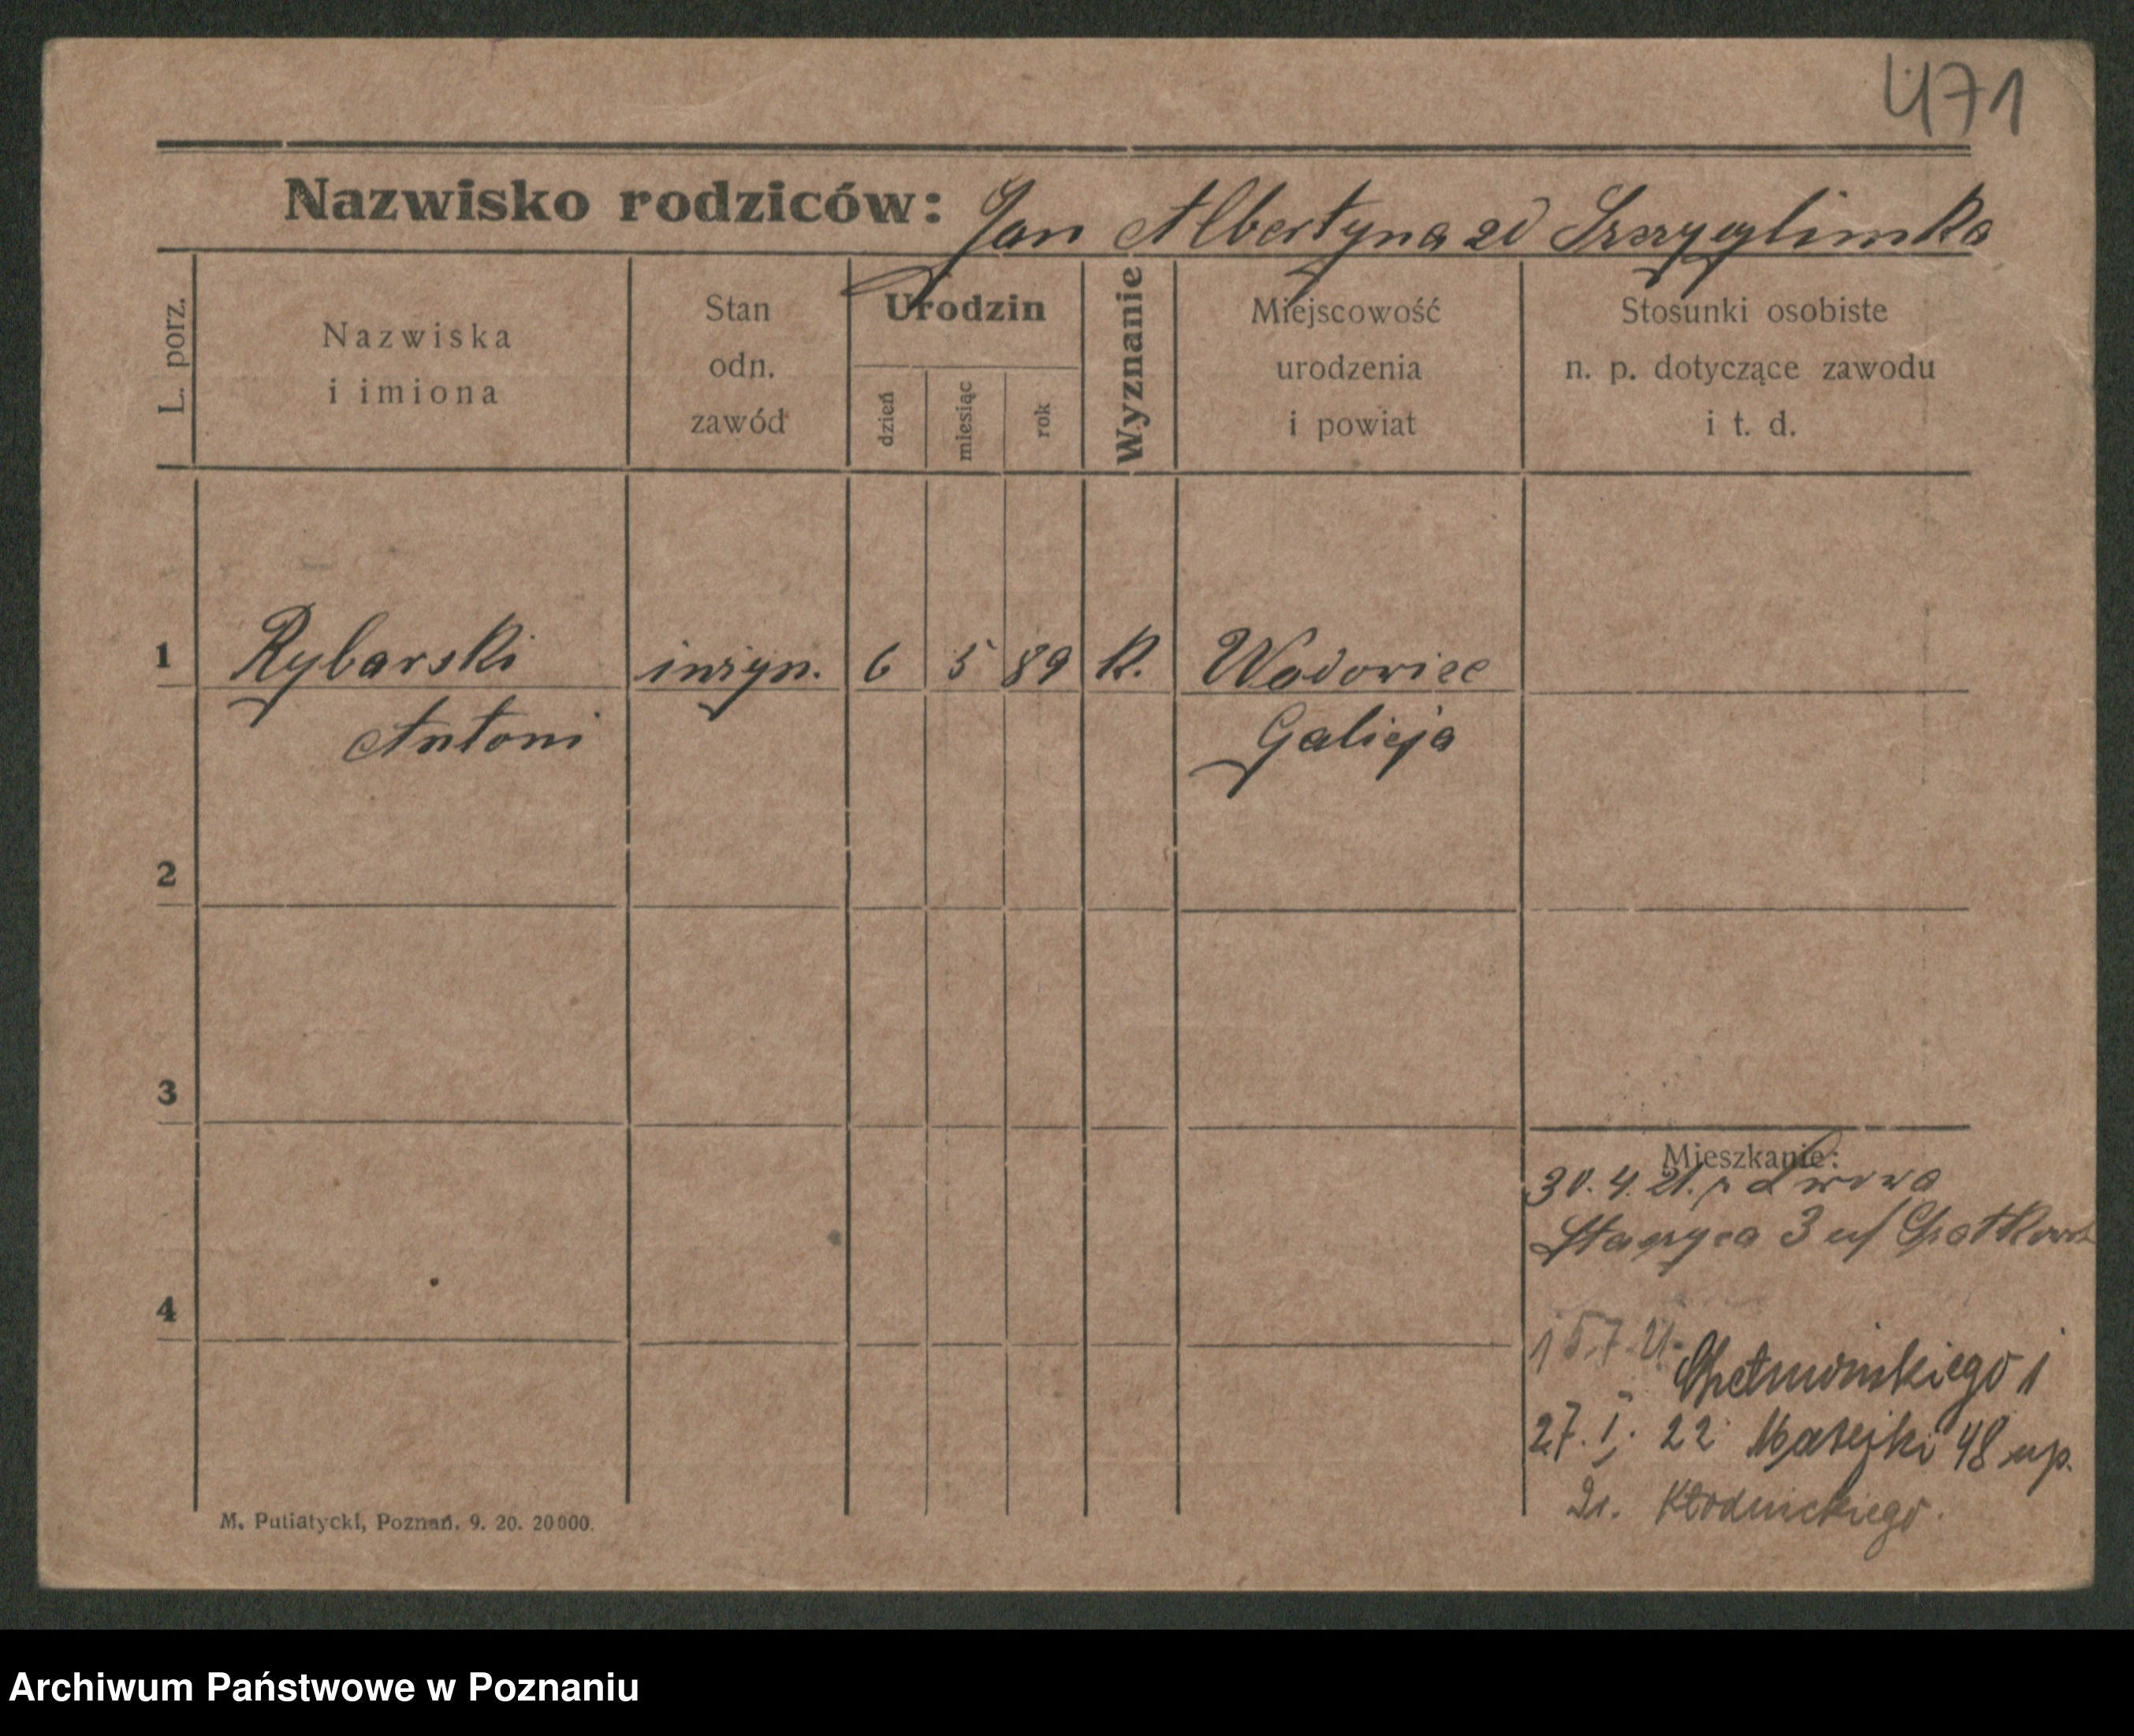 471
Nazwisko rodziców: Jan Albertyna zd
L. porz.
Nazwiska
i imiona
Stan
odn.
zawód
Urodzin
dzień
miesiąc
rok
Wyznanie
Miejscowość
urodzenia
i powiat
Stosunki osobiste
n. p. dotyczące zawodu
i t. d.
1 Rybarski inżyn. 6 5 89 K. Wadowice
Antoni Galicja
2
3
Mieszkanie:
30. 4. 21. Lwowa
3 u/
4
15.7.21.
Chełmońskiego 1
27. I. 22 Matejki 48 u p.
Kłodnickiego.
M. Putiatycki, Poznań. 9. 20. 20000.
Archiwum Państwowe w Poznaniu